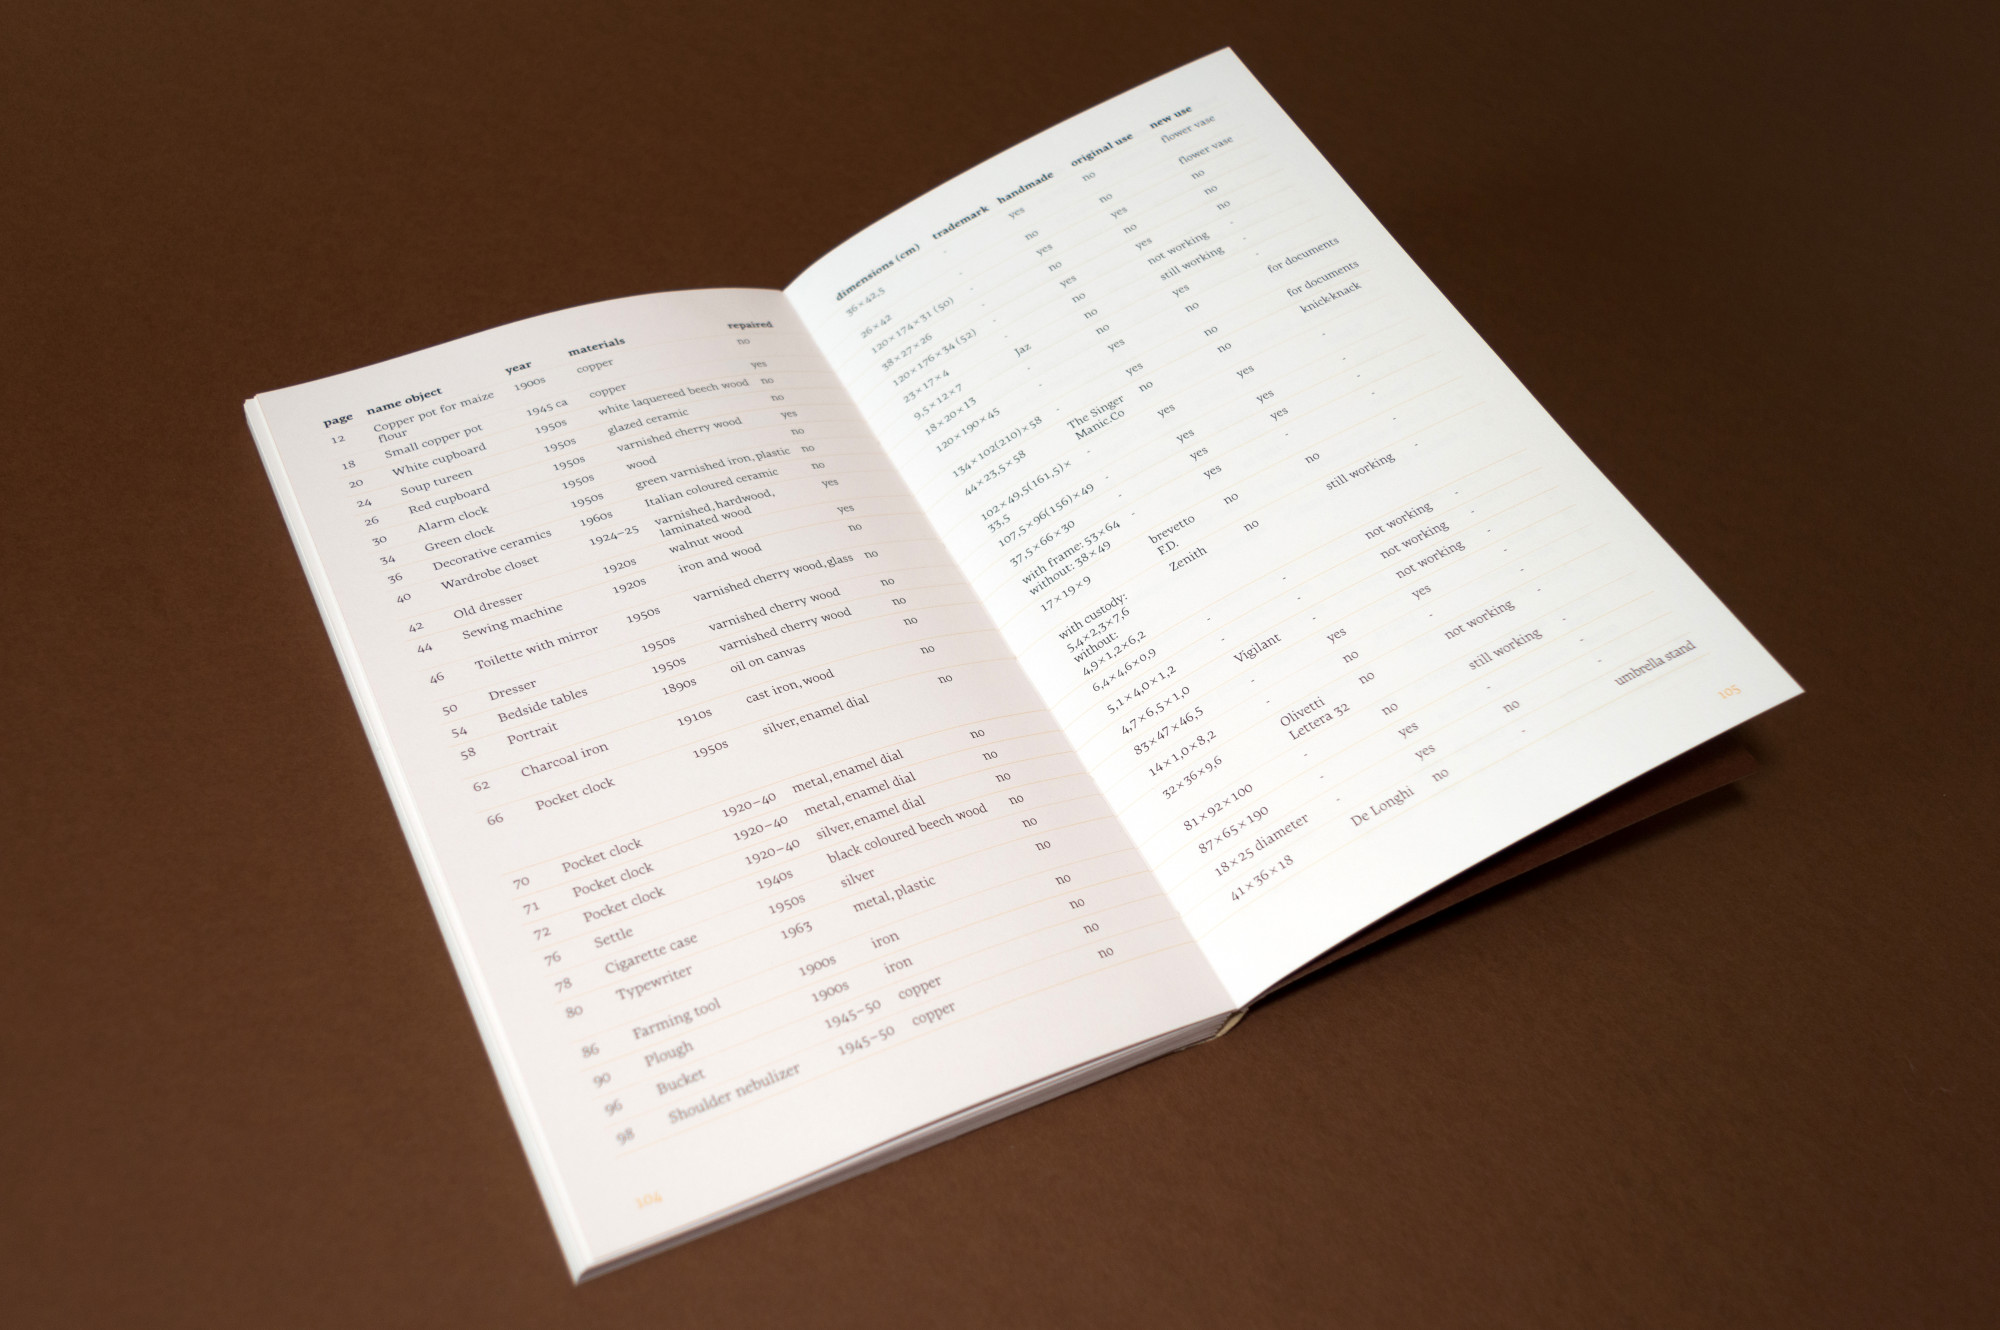 page name object year materials repaired
12 Copper pot for maize 1900s copper no
flour
18 Small copper pot 1945 ca copper yes
20 White cupboard 1950s white laquereed beech wood no
24 Soup tureen 1950s glazed ceramic no
26 Red cupboard 1950s varnished cherry wood yes
30 Alarm clock 1950s wood no
34 Green clock 1950s green varnished iron, plastic no
36 Decorative ceramics 1960s Italian coloured ceramic no
40 Wardrobe closet 1924–25 varnished, hardwood, yes
laminated wood
42 Old dresser 1920s walnut wood yes
44 Sewing machine 1920s iron and wood no
46 Toilette with mirror 1950s varnished cherry wood, glass no
50 Dresser 1950s varnished cherry wood no
54 Bedside tables 1950s varnished cherry wood no
58 Portrait 1890s oil on canvas no
62 Charcoal iron 1910s cast iron, wood no
66 Pocket clock 1950s silver, enamel dial no
70 Pocket clock 1920–40 metal, enamel dial no
71 Pocket clock 1920–40 metal, enamel dial no
72 Pocket clock 1920–40 silver, enamel dial no
76 Settle 1940s black coloured beech wood no
78 Cigarette case 1950s silver no
80 Typewriter 1963 metal, plastic no
86 Farming tool 1900s iron no
90 Plough 1900s iron no
96 Bucket 1945–50 copper no
98 Shoulder nebulizer 1945–50 copper no
104
dimensions (cm) trademark handmade original use new use
36×42,5 - yes no flower vase
26×42 - no no flower vase
120×174×31 (50) - yes yes no
38×27×26 - no no no
120×176×34 (52) - yes yes no
23×17×4 Jaz no not working -
9,5×12×7 - no still working -
18×20×13 - no yes -
120×190×45 yes no for documents
134×102(210)×58 - yes no for documents
44×23,5×58 The Singer no no knick-knack
Manic.Co
102×49,5(161,5)× - yes yes -
33,5
107,5×96(156)×49 - yes yes -
37,5×66×30 - yes yes -
with frame: 53×64 - yes - -
without: 38×49
17×19×9 brevetto no no -
F.D.
with custody: Zenith no still working -
5,4×2,3×7,6
without:
4,9×1,2×6,2
6,4×4,6×0,9 - - not working -
5,1×4,0×1,2 - - not working -
4,7×6,5×1,0 Vigilant - not working -
83×47×46,5 - yes yes -
14×1,0×8,2 - no - -
32×36×9,6 Olivetti no not working -
Lettera 32
81×92×100 - no still working -
87×65×190 - yes - -
18×25 diameter - yes - -
41×36×18 De Longhi no no umbrella stand
105